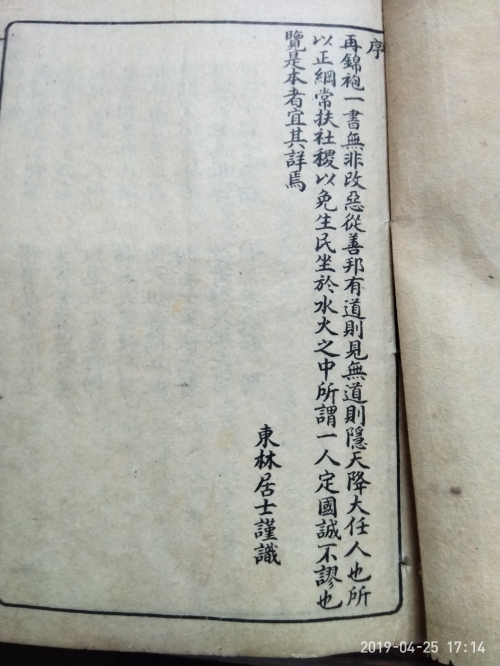 序
再錦袍一書無非改惡從善邦有道則見無道則隱天降大任人也所
以正綱常扶社稷以免生民坐於水火之中所謂一人定國誠不謬也
覽是本者宜其詳焉
東林居士謹識
2019-04-25 17:14